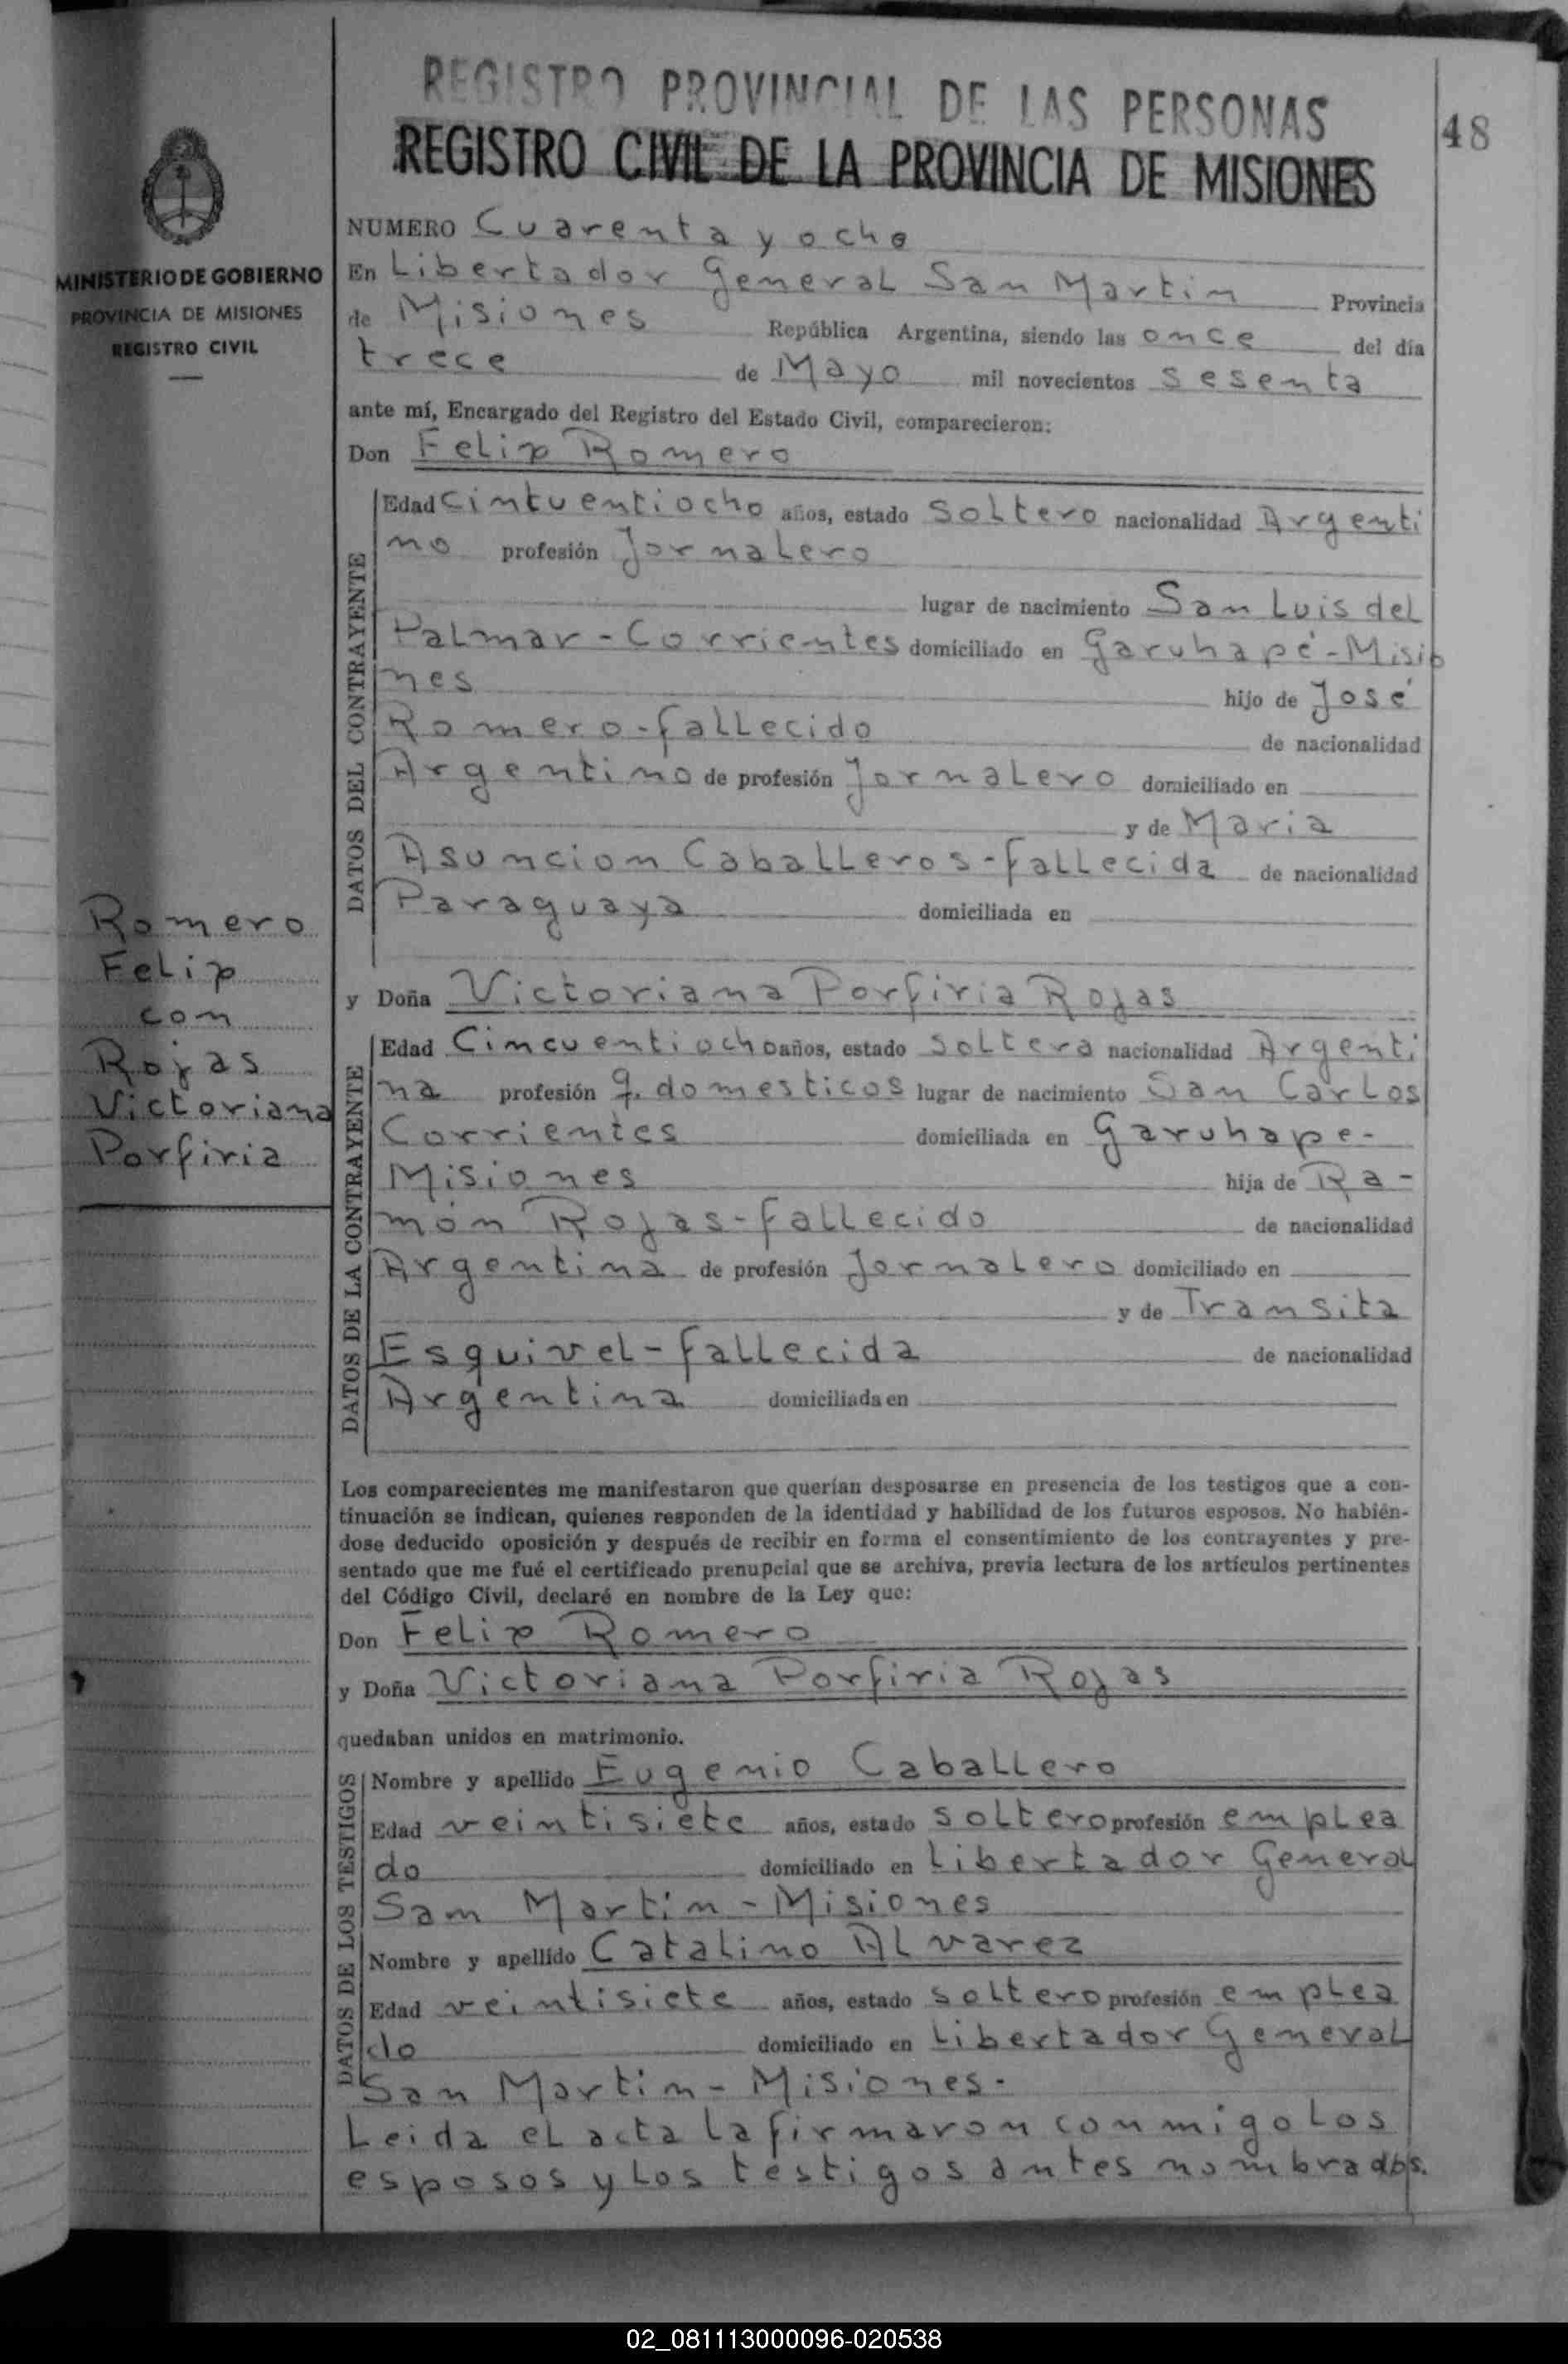 REGISTRO PROVINCIAL DE LAS PERSONAS
REGISTRO CIVIL DE LA PROVINCIA DE MISIONES
48
MINISTERIO DE GOBIERNO
PROVINCIA DE MISIONES
REGISTRO CIVIL
Romero
Felix
con
Rojas
Victoriana
Porfiria
NUMERO Cuarenta y ocho
En Libertador General San Martin Provincia
de Misiones República Argentina, siendo las once del día
trece de Mayo mil novecientos sesenta
ante mí, Encargado del Registro del Estado Civil, comparecieron:
Don Felix Romero
DATOS DEL CONTRAYENTE
Edad cintuentiocho años, estado soltero nacionalidad Argenti
no profesión Jornalero
lugar de nacimiento San Luis del
Palmar - Corrientes domiciliado en Garuhapé - Misio
nes hijo de José
Romero - fallecido de nacionalidad
Argentino de profesión Jornalero domiciliado en
y de Maria
Asuncion Caballeros - fallecida de nacionalidad
Paraguaya domiciliada en
y Doña Victoriana Porfiria Rojas
DATOS DE LA CONTRAYENTE
Edad Cincuentiocho años, estado soltera nacionalidad Argenti
na profesión q. domesticos lugar de nacimiento San Carlos
Corrientes domiciliada en Garuhape -
Misiones hija de Ra-
món Rojas - fallecido de nacionalidad
Argentina de profesión Jornalero domiciliado en
y de Transita
Esquivel - fallecida de nacionalidad
Argentina domiciliada en
Los comparecientes me manifestaron que querían desposarse en presencia de los testigos que a con-
tinuación se indican, quienes responden de la identidad y habilidad de los futuros esposos. No habién-
dose deducido oposición y después de recibir en forma el consentimiento de los contrayentes y pre-
sentado que me fué el certificado prenupcial que se archiva, previa lectura de los artículos pertinentes
del Código Civil, declaré en nombre de la Ley que:
Don Felix Romero
y Doña Victoriana Porfiria Rojas
quedaban unidos en matrimonio.
DATOS DE LOS TESTIGOS
Nombre y apellido Eugenio Caballero
Edad veintisiete años, estado soltero profesión emplea
do domiciliado en Libertador General
San Martin - Misiones
Nombre y apellido Catalino Alvarez
Edad veintisiete años, estado soltero profesión emplea
do domiciliado en Libertador General
San Martin - Misiones.
Leida el acta la firmaron conmigo los
esposos y los testigos antes nombrados.
02_081113000096-020538